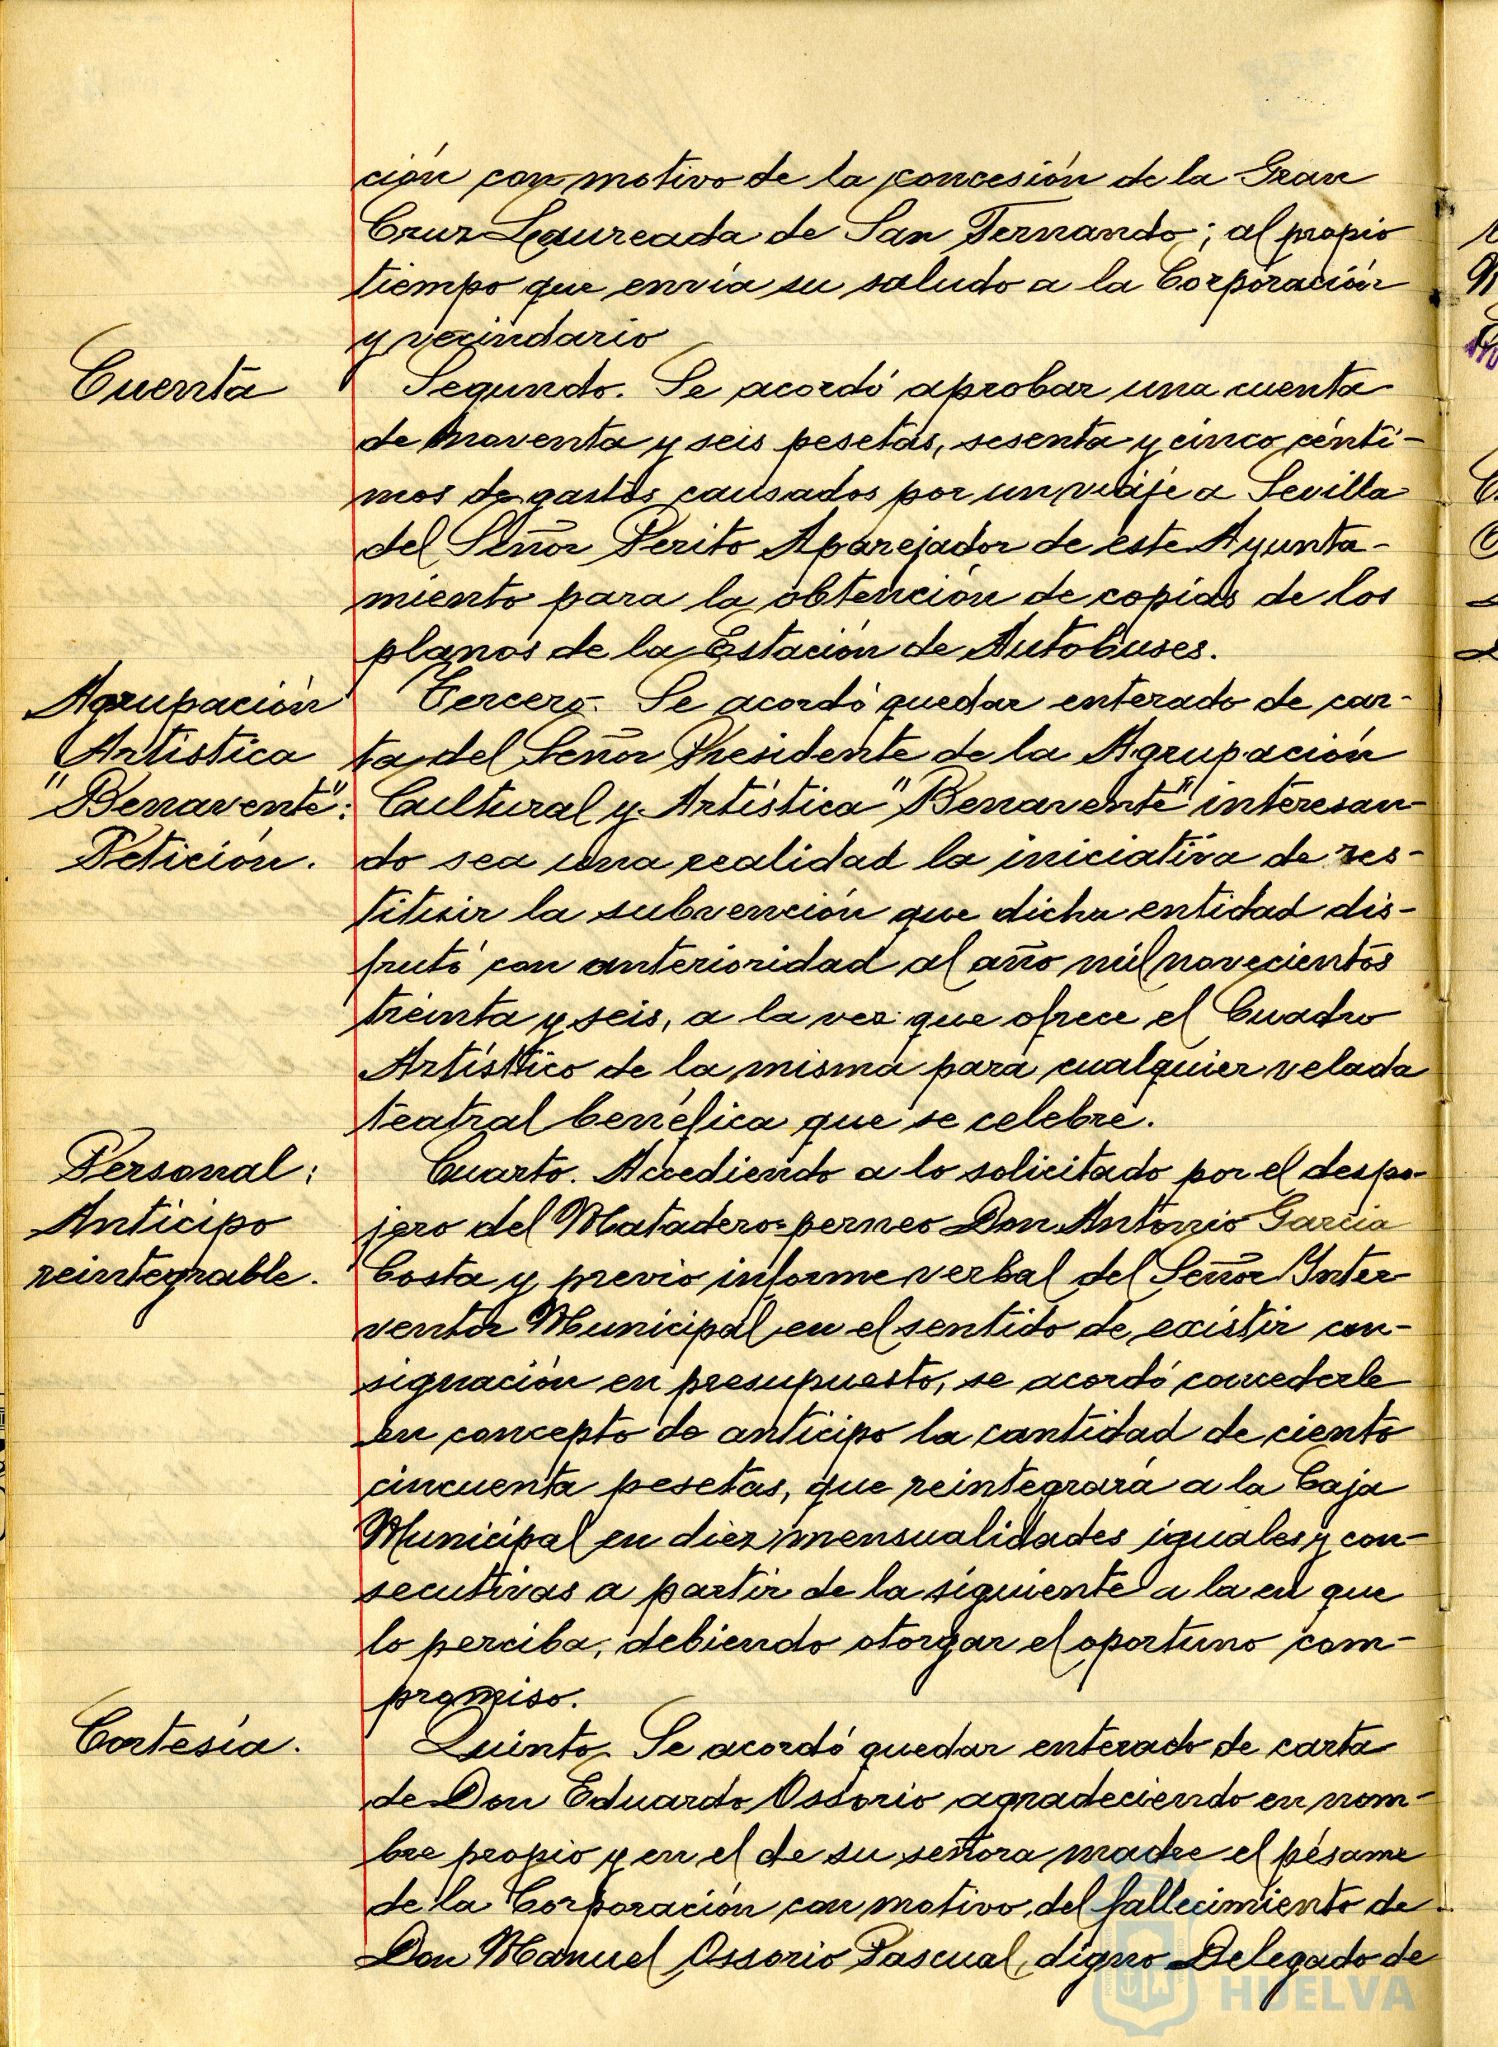 ción con motivo de la concesión de la Gran
Cruz Laureada de San Fernando; al propio
tiempo que envía su saludo a la Corporación
y vecindario
Cuenta
Segundo. Se acordó aprobar una cuenta
de noventa y seis pesetas, sesenta y cinco cénti-
mos de gastos causados por un viaje a Sevilla
del Señor Perito Aparejador de este Ayunta-
miento para la obtención de copias de los
planos de la Estación de Autobuses.
Agrupación
Artística
"Benavente":
Petición.
Tercero. Se acordó quedar enterado de car-
ta del Señor Presidente de la Agrupación
Cultural y Artística "Benavente" interesan-
do sea una realidad la iniciativa de res-
tituir la subvención que dicha entidad dis-
frutó con anterioridad al año mil novecientos
treinta y seis, a la vez que ofrece el Cuadro
Artístico de la misma para cualquier velada
teatral benéfica que se celebre.
Personal:
Anticipo
reintegrable.
Cuarto. Accediendo a lo solicitado por el despo-
jero del Matadero perneo Don Antonio García
Costa y previo informe verbal del Señor Inter
ventor Municipal en el sentido de existir con-
signación en presupuesto, se acordó concederle
en concepto de anticipo la cantidad de ciento
cincuenta pesetas, que reintegrará a la Caja
Municipal en diez mensualidades iguales y con-
secutivas a partir de la siguiente a la en que
lo perciba, debiendo otorgar el oportuno com-
promiso.
Cortesía.
Quinto. Se acordó quedar enterado de carta
de Don Eduardo Ossorio agradeciendo en nom-
bre propio y en el de su señora madre el pésame
de la Corporación con motivo del fallecimiento de
Don Manuel Ossorio Pascual, digno Delegado de
HUELVA